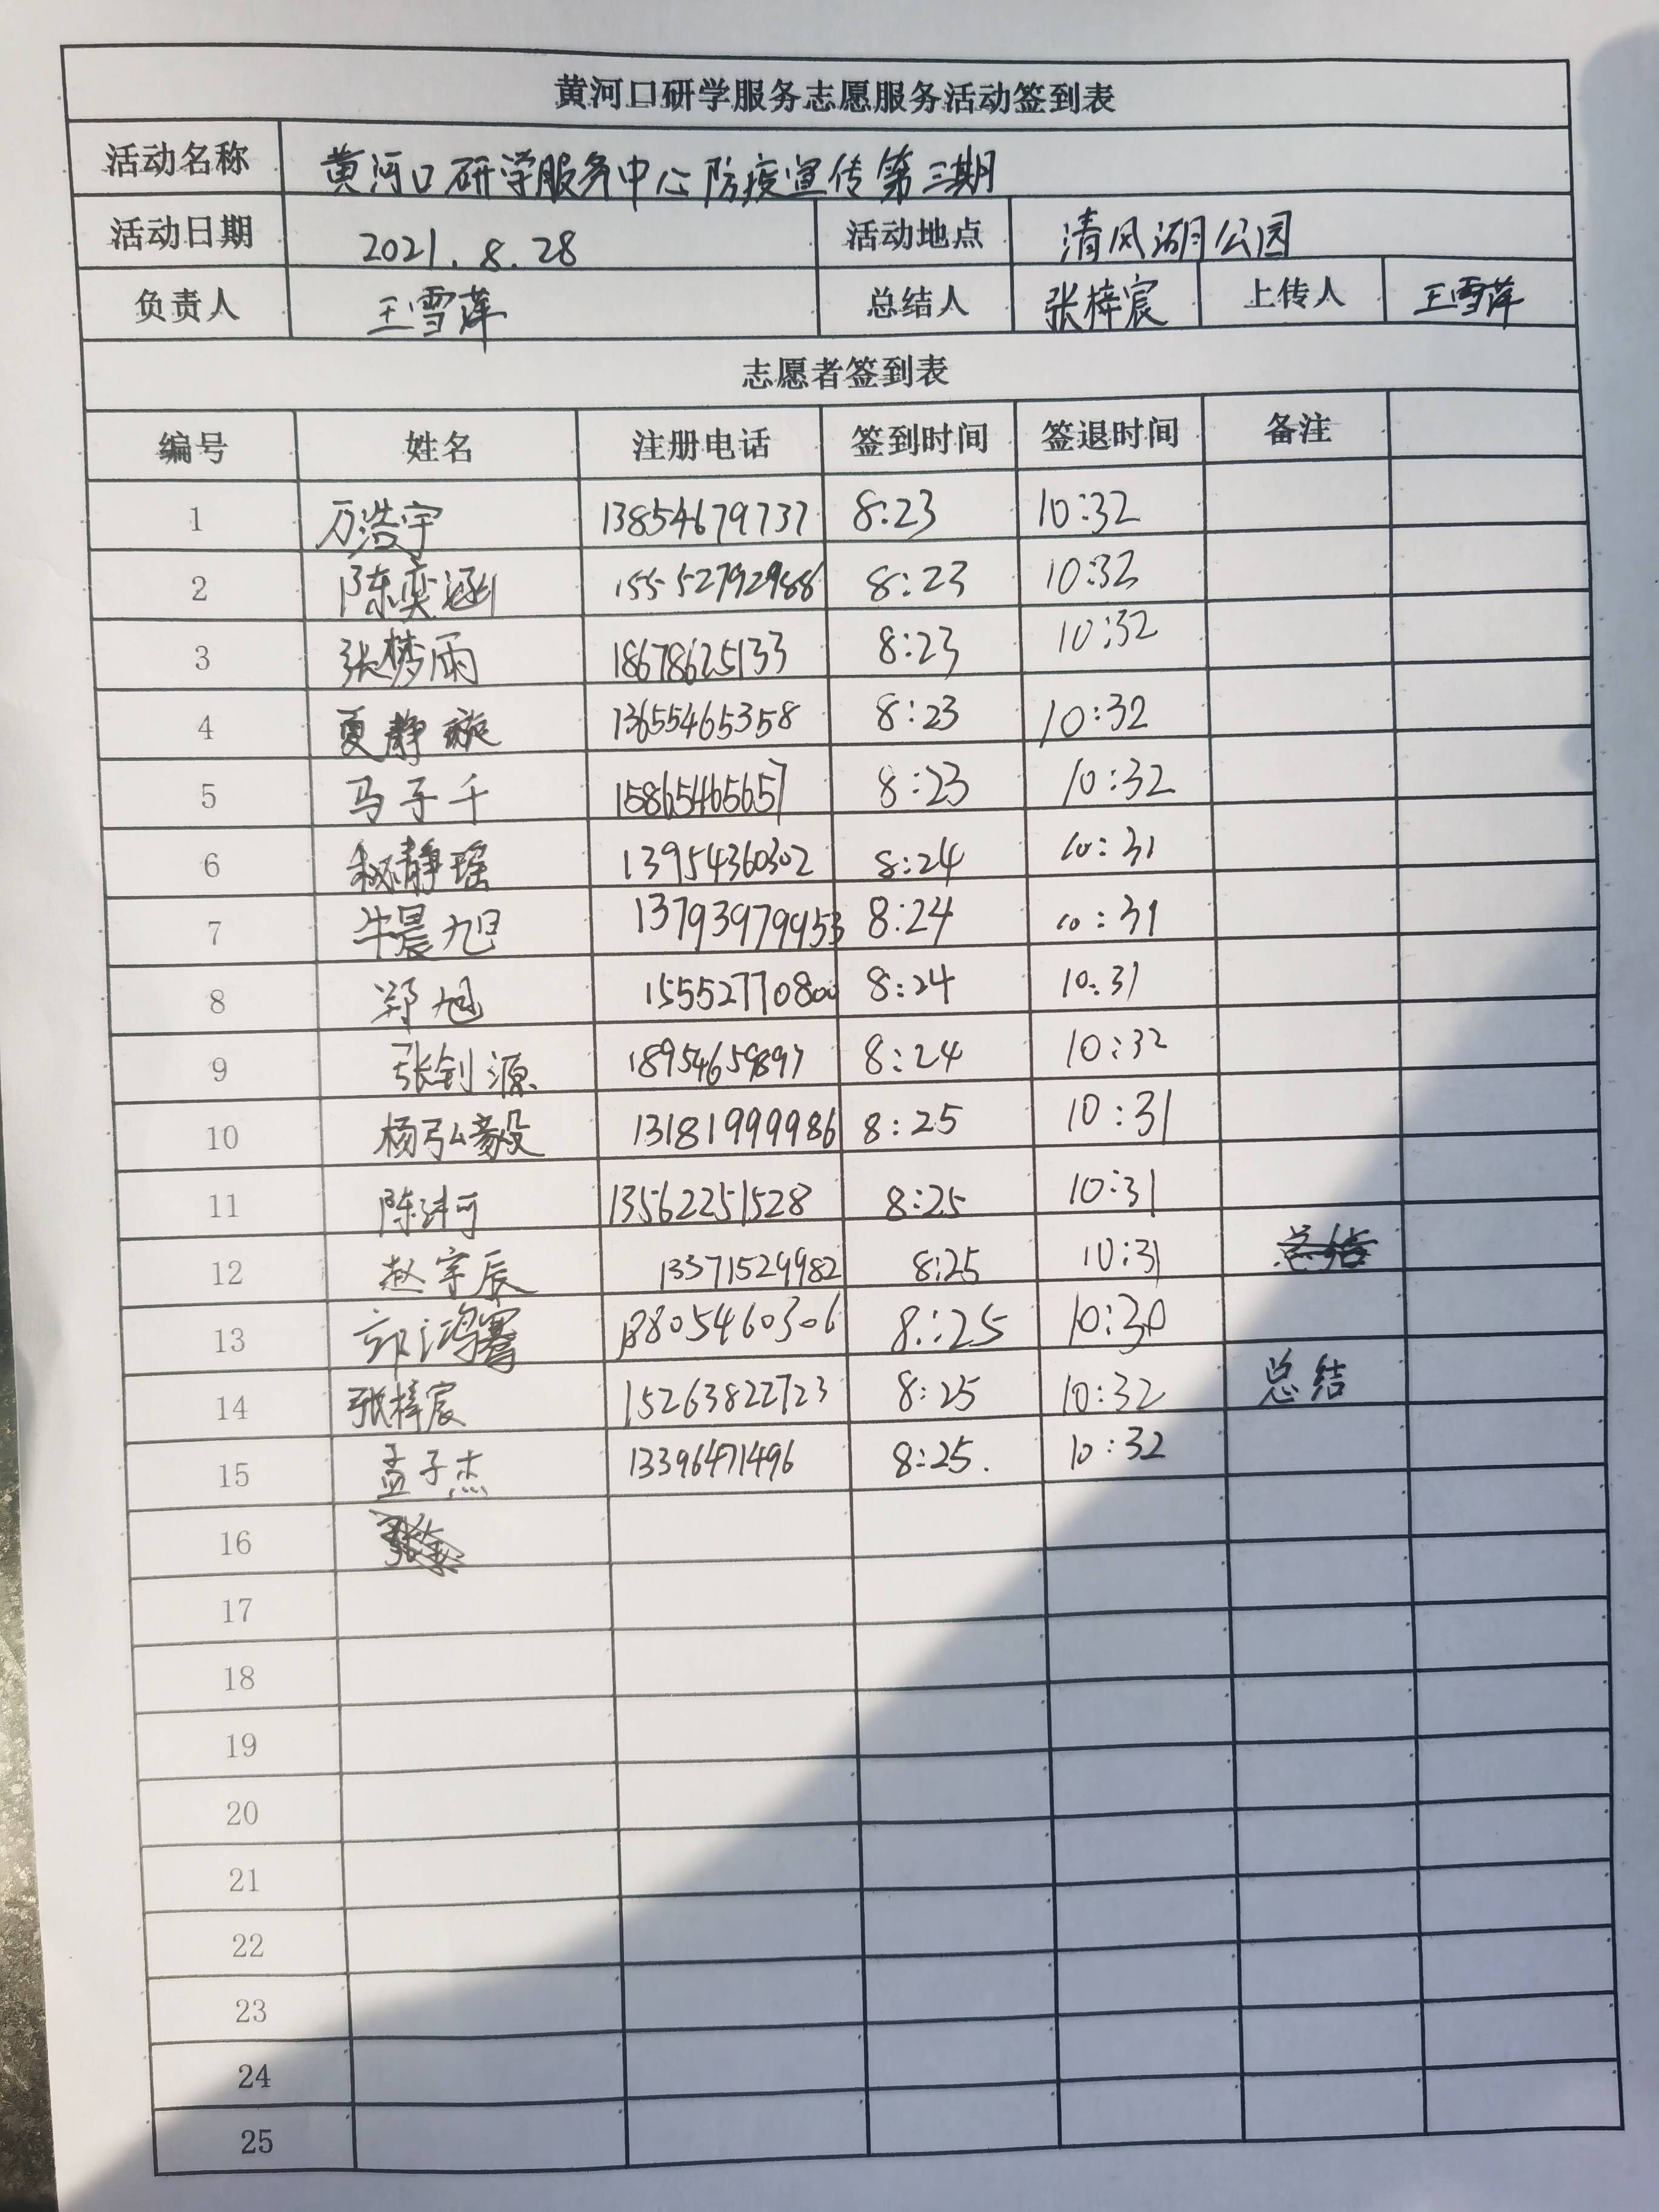 黄河口研学服务志愿服务活动签到表
活动名称 黄河口研学服务中心防疫宣传第三期
活动日期 2021.8.28 活动地点 清风湖公园
负责人 王雪萍 总结人 张梓宸 上传人 王雪萍
志愿者签到表
编号 姓名 注册电话 签到时间 签退时间 备注
1 万浩宇 13854679737 8:23 10:32
2 陈奕涵 15552792988 8:23 10:32
3 张梦雨 18678625133 8:23 10:32
4 夏静璇 13655465358 8:23 10:32
5 马子千 15865465657 8:23 10:32
6 静瑶 13954360302 8:24 10:31
7 牛晨旭 13793979953 8:24 10:31
8 郑旭 15552770800 8:24 10:31
9 张钊源 18954659897 8:24 10:32
10 杨弘毅 13181999986 8:25 10:31
11 陈沣可 13562251528 8:25 10:31
12 赵宇辰 13371529982 8:25 10:31
13 郭鸿骞 18805460306 8:25 10:30
14 张梓宸 15263822723 8:25 10:32 总结
15 孟子杰 13396471496 8:25. 10:32
16
17
18
19
20
21
22
23
24
25